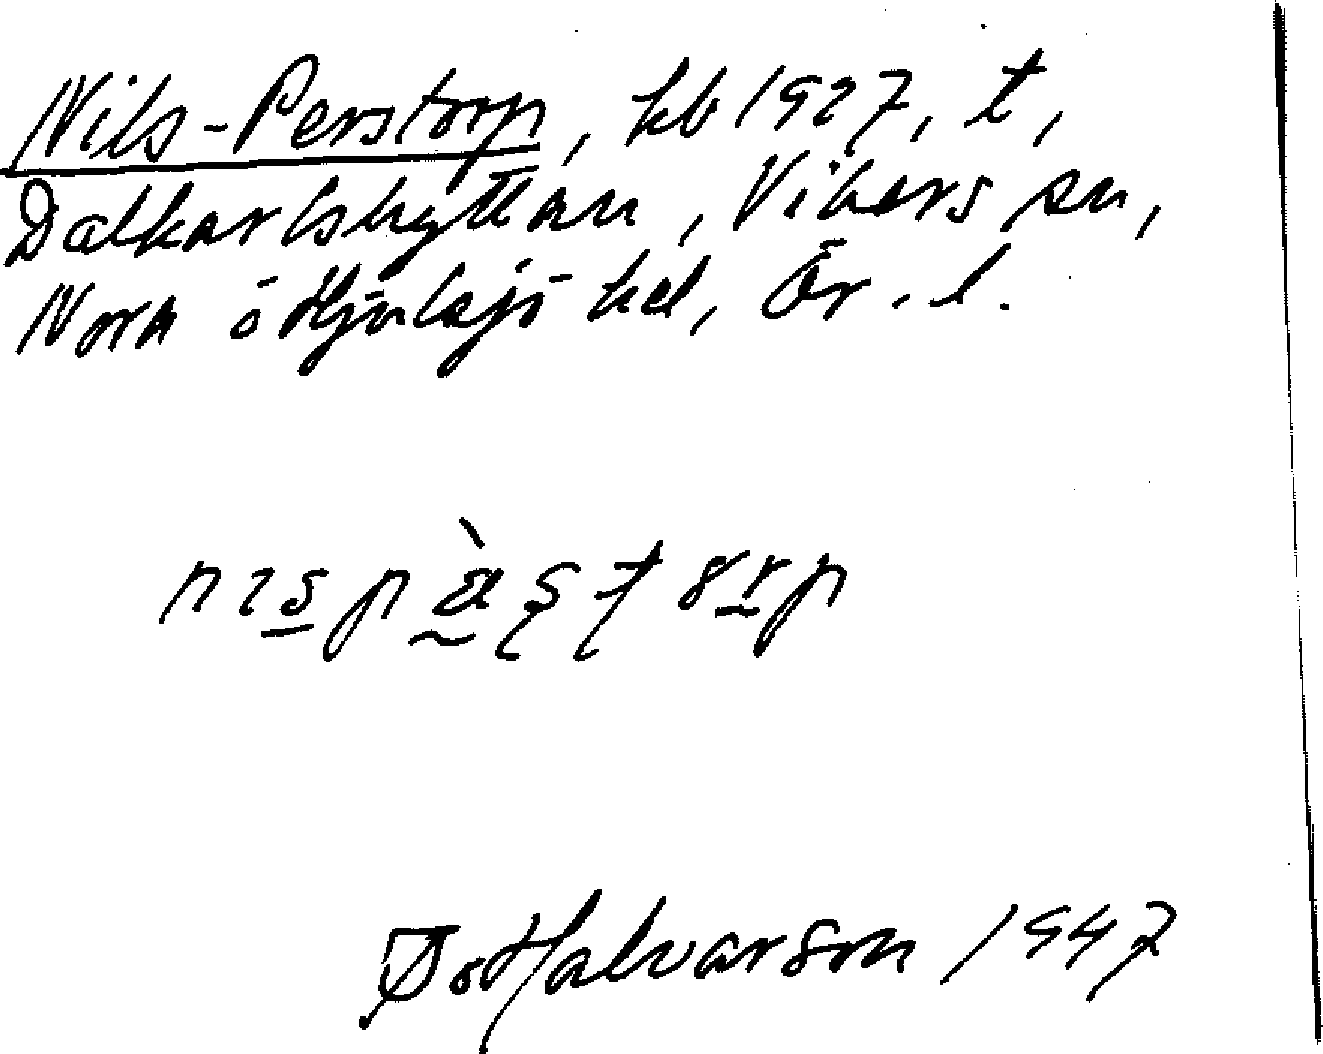 Nils-Perstorp, kb 1927, t,
Dalkarlshyttan, Vikers sn,
Nora o Hjulsjö hd, Ör. l.
Halvarson 1947